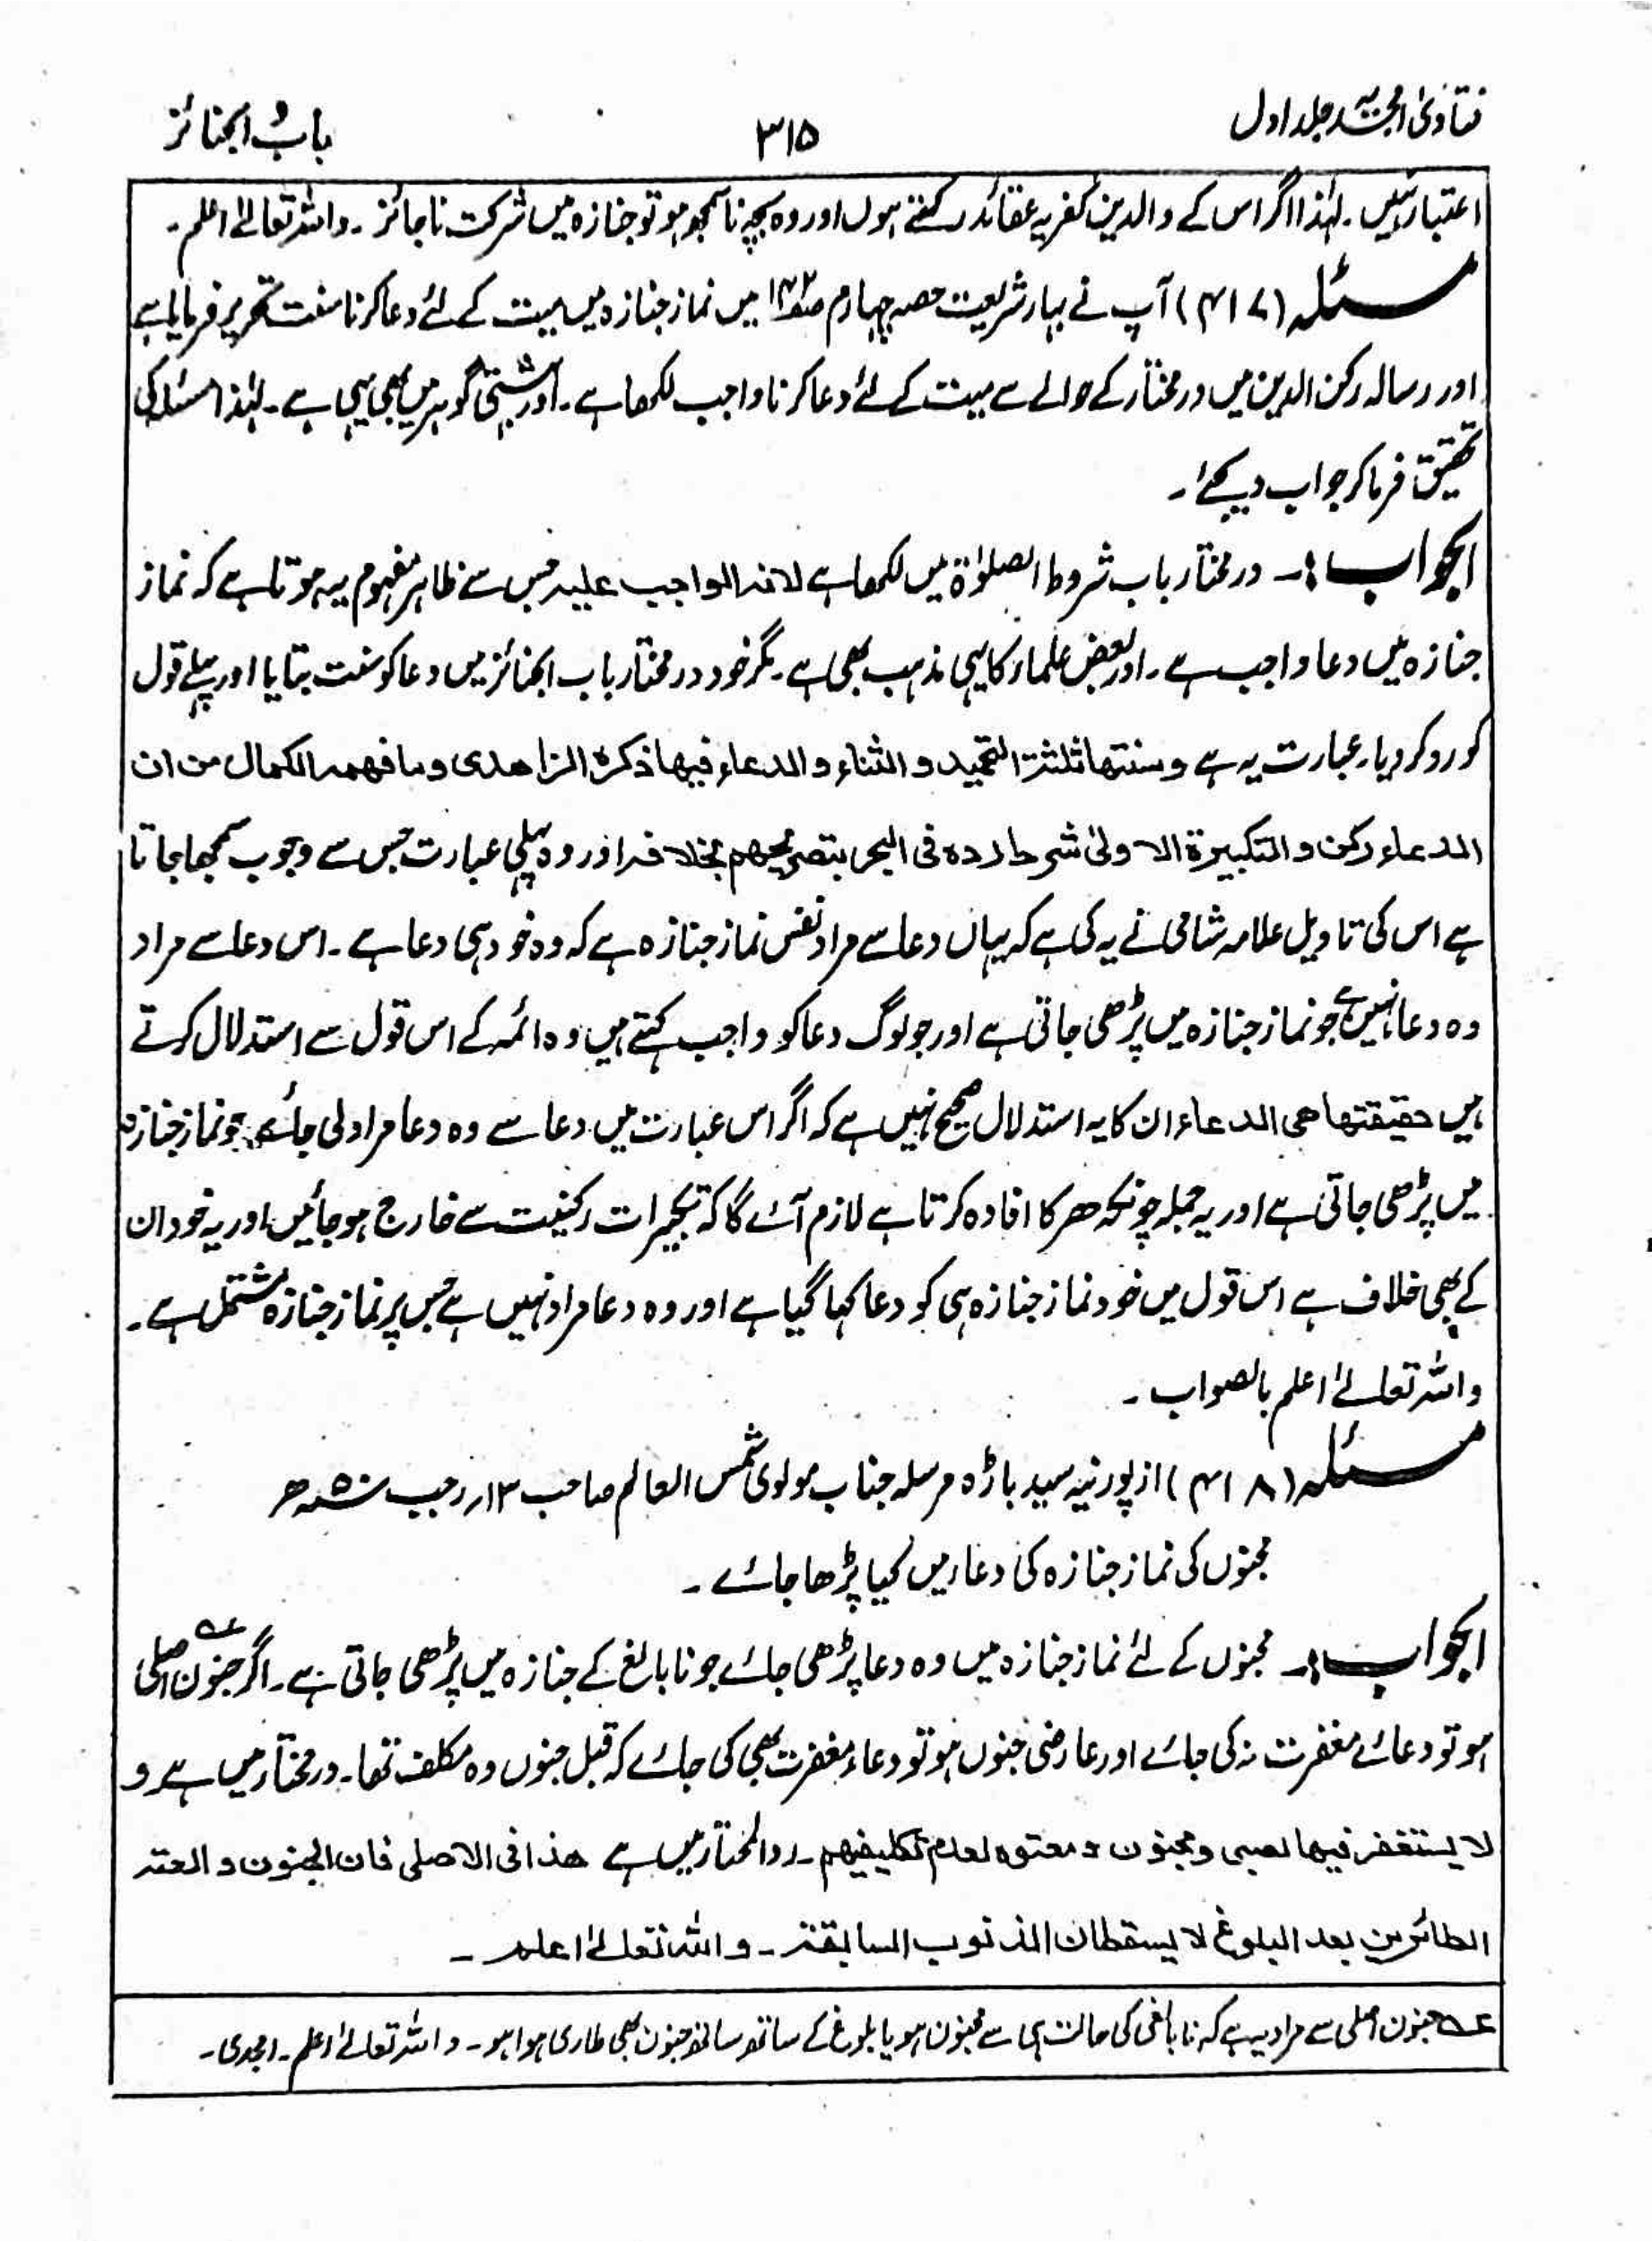 فتاویٰ امجدیہ جلد اول
۳۱۵
باب الجنائز
اعتبار نہیں ۔ لہٰذا اگر اس کے والدین کفریہ عقائد رکھتے ہوں اور وہ بچہ ناسمجھ ہو تو جنازہ میں شرکت ناجائز ۔ واللہ تعالیٰ اعلم ۔
مسئلہ (۴۱۷) آپ نے بہار شریعت حصہ چہارم صفحہ ۱۴۲ میں نماز جنازہ میں میت کے لئے دعا کرنا سنت تحریر فرمایا ہے
اور رسالہ رکن الدین میں درمختار کے حوالے سے میت کے لئے دعا کرنا واجب لکھا ہے ۔ اور بہشتی گوہر میں بھی یہی ہے ۔ لہٰذا مسئلہ کی
تحقیق فرما کر جواب دیجئے ۔
الجواب :۔ درمختار باب شروط الصلوٰۃ میں لکھا ہے لانہ الواجب علیہ جس سے ظاہر مفہوم یہ ہوتا ہے کہ نماز
جنازہ میں دعا واجب ہے ۔ اور بعض علماء کا یہی مذہب بھی ہے ۔ مگر خود درمختار باب الجنائز میں دعا کو سنت بتایا اور پہلے قول
کو رد کر دیا ۔ عبارت یہ ہے وسنتھا ثلثۃ التحمید و الثناء و الدعاء فیھا ذکرہ الزاھدی وما فھمہ الکمال من ان
الدعاء رکن و التکبیرۃ الاولیٰ شرط ردہ فی البحر بتصریحھم بخلافہ اور وہ پہلی عبارت جس سے وجوب سمجھا جاتا
ہے اس کی تاویل علامہ شامی نے یہ کی ہے کہ یہاں دعا سے مراد نفس نماز جنازہ ہے کہ وہ خود ہی دعا ہے ۔ اس دعا سے مراد
وہ دعا نہیں ہے جو نماز جنازہ میں پڑھی جاتی ہے اور جو لوگ دعا کو واجب کہتے ہیں وہ ائمہ کے اس قول سے استدلال کرتے
ہیں حقیقتھا ھی الدعاء ان کا یہ استدلال صحیح نہیں ہے کہ اگر اس عبارت میں دعا سے وہ دعا مراد لی جائے جو نماز جنازہ
میں پڑھی جاتی ہے اور یہ جملہ چونکہ حصر کا افادہ کرتا ہے لازم آئے گا کہ تکبیرات رکنیت سے خارج ہو جائیں اور یہ خود ان
کے بھی خلاف ہے اس قول میں خود نماز جنازہ ہی کو دعا کہا گیا ہے اور وہ دعا مراد نہیں ہے جس پر نماز جنازہ مشتمل ہے ۔
واللہ تعالیٰ اعلم بالصواب ۔
مسئلہ (۴۱۸) از پورنیہ سید باڑہ مرسلہ جناب مولوی شمس العالم صاحب ۱۳؍ رجب ۵۰ھ
مجنوں کی نماز جنازہ کی دعاء میں کیا پڑھا جائے ۔
الجواب :۔ مجنوں کے لئے نماز جنازہ میں وہ دعا پڑھی جائے جو نابالغ کے جنازہ میں پڑھی جاتی ہے ۔ اگر جنون اصلی عہ
ہو تو دعائے مغفرت نہ کی جائے اور عارضی جنوں ہو تو دعاء مغفرت بھی کی جائے کہ قبل جنوں وہ مکلف تھا ۔ درمختار میں ہے و
لا یستغفر فیھا لصبی و مجنون و معتوہ لعدم تکلیفھم ۔ ردالمحتار میں ہے ھذا فی الاصلی فان الجنون و العتہ
الطائرین بعد البلوغ لا یسقطان الذنوب السابقۃ ۔ واللہ تعالیٰ اعلم ۔
عہ جنون اصلی سے مراد یہ ہے کہ نابالغی کی حالت ہی سے مجنون ہو یا بلوغ کے ساتھ ساتھ جنون بھی طاری ہوا ہو ۔ واللہ تعالیٰ اعلم ۔ امجدی ۔